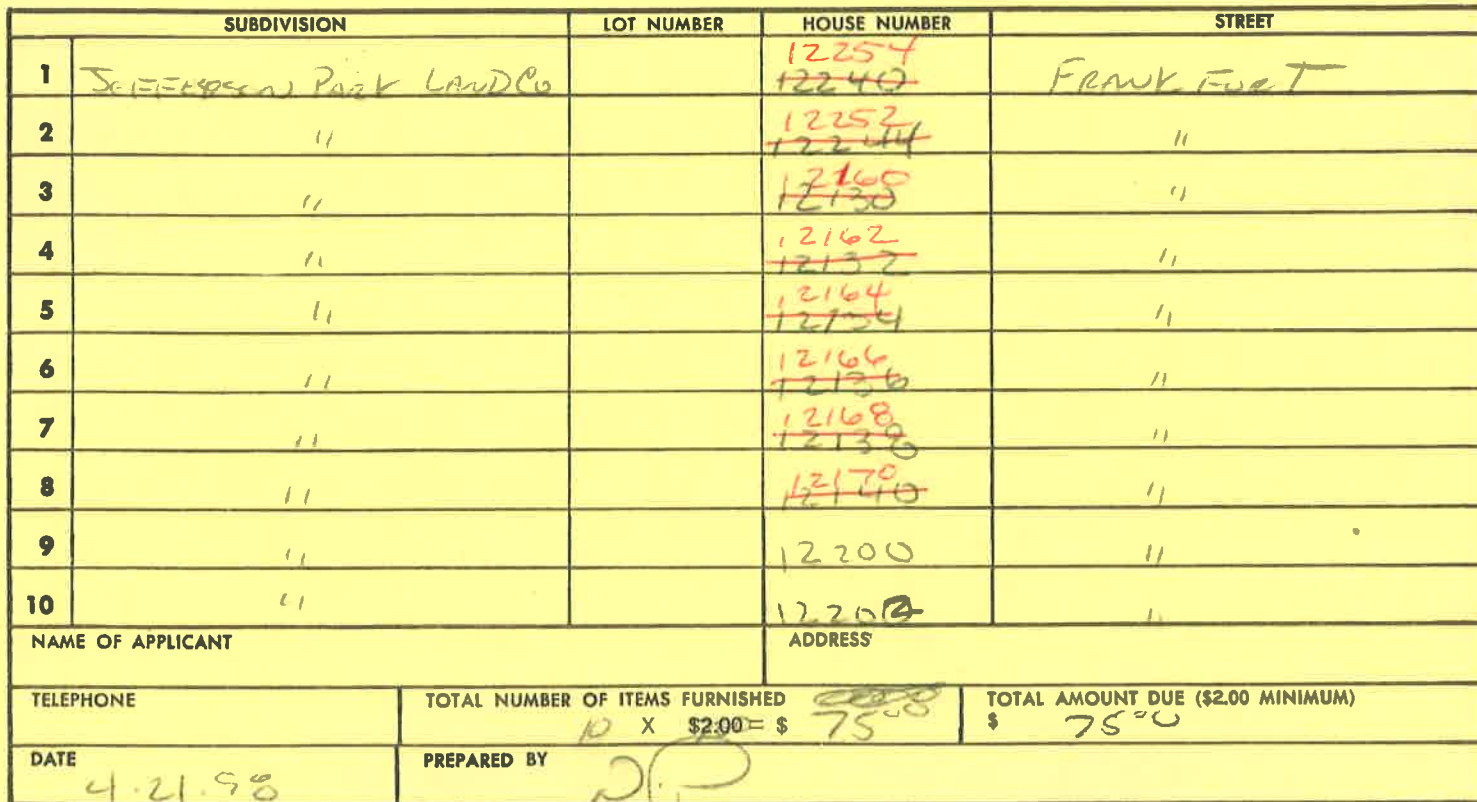 SUBDIVISION LOT NUMBER HOUSE NUMBER STREET
12254
1 JEFFERSON PARK LAND CO 12240 FRANKFURT
12252
2 " 12244 "
12160
3 " 12130 "
12162
4 " 12132 "
12164
5 " 12134 "
12166
6 " 12136 "
12168
7 " 12138 "
12170
8 " 12140 "
9 " 12200 "
10 " 12202 "
NAME OF APPLICANT ADDRESS
TELEPHONE TOTAL NUMBER OF ITEMS FURNISHED TOTAL AMOUNT DUE ($2.00 MINIMUM)
10 X $2.00 = $ 75.00 $ 75.00
DATE PREPARED BY
4.21.98